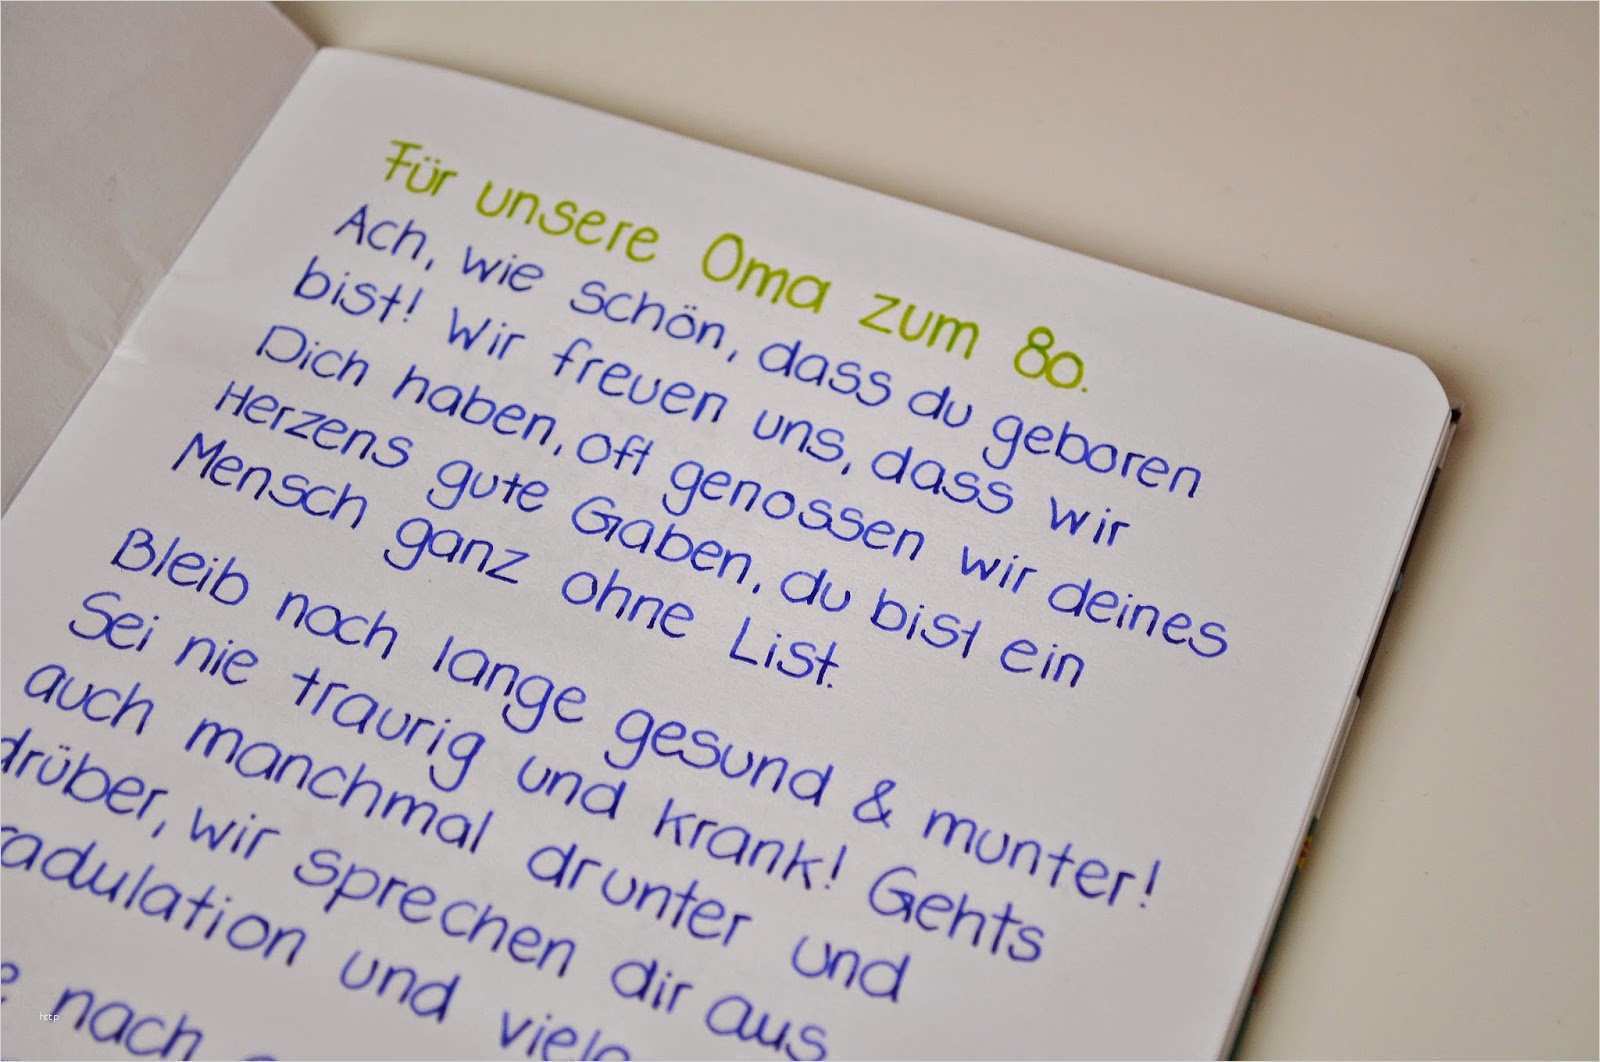 Für unsere Oma zum 80.
Ach, wie schön, dass du geboren
bist! Wir freuen uns, dass wir
Dich haben, oft genossen wir deines
Herzens gute Gaben, du bist ein
Mensch ganz ohne List.
Bleib noch lange gesund & munter!
Sei nie traurig und krank! Gehts
auch manchmal drunter und
drüber, wir sprechen dir aus
radulation und viele
nach
http